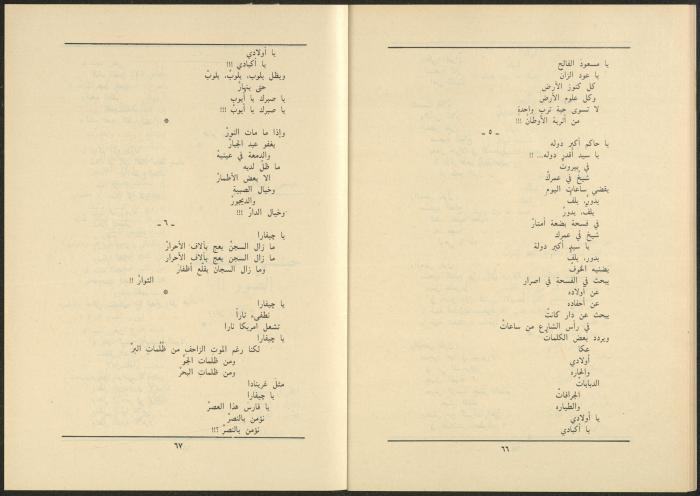 يا مسعود الفالح
يا عود الزان
كل كنوز الأرض
وكل علوم الأرض
لا تسوى حبة ترب واحدة
من أتربة الأوطان !!!
- ٥ -
يا حاكم أكبر دوله
يا سيد أقدر دوله... !!
في بيروت
شيخ في عمرك
يقضي ساعات اليوم
يدور، يلف
يلف، يدور
في فسحة بضعة أمتار
شيخ في عمرك
يا سيد أكبر دولة
يدور، يلف
يضنيه الخوف
يبحث في الفسحة في اصرار
عن أولاده
عن أحفاده
يبحث عن دار كانت
في رأس الشارع من ساعات
ويردد بعض الكلمات
عكا
أولادي
والحاره
الدبابات
الجرافات
والطياره
يا أولادي
يا أكبادي
٦٦
يا أولادي
يا أكبادي !!!
ويظل يلوب، يلوب، يلوب
حتى ينهار
يا صبرك يا أيوب
يا صبرك يا أيوب !!!
*
وإذا ما مات النور
يغفو عبد الجبار
والدمعة في عينيه
ما ظل لديه
الا بعض الأطمار
وخيال الصبية
والديجور
وخيال الدار !!!
- ٦ -
يا جيفارا
ما زال السجن يعج بآلاف الأحرار
ما زال السجن يعج بآلاف الأحرار
وما زال السجان يقلع أظفار
الثوار !!
*
يا جيفارا
نطفىء ناراً
تشعل أمريكا نارا
يا جيفارا
لكنا رغم الموت الزاحف من ظلمات البر
ومن ظلمات الجو
ومن ظلمات البحر
مثل غرينادا
يا جيفارا
يا فارس هذا العصر
نؤمن بالنصر
نؤمن بالنصر !!؟
٦٧